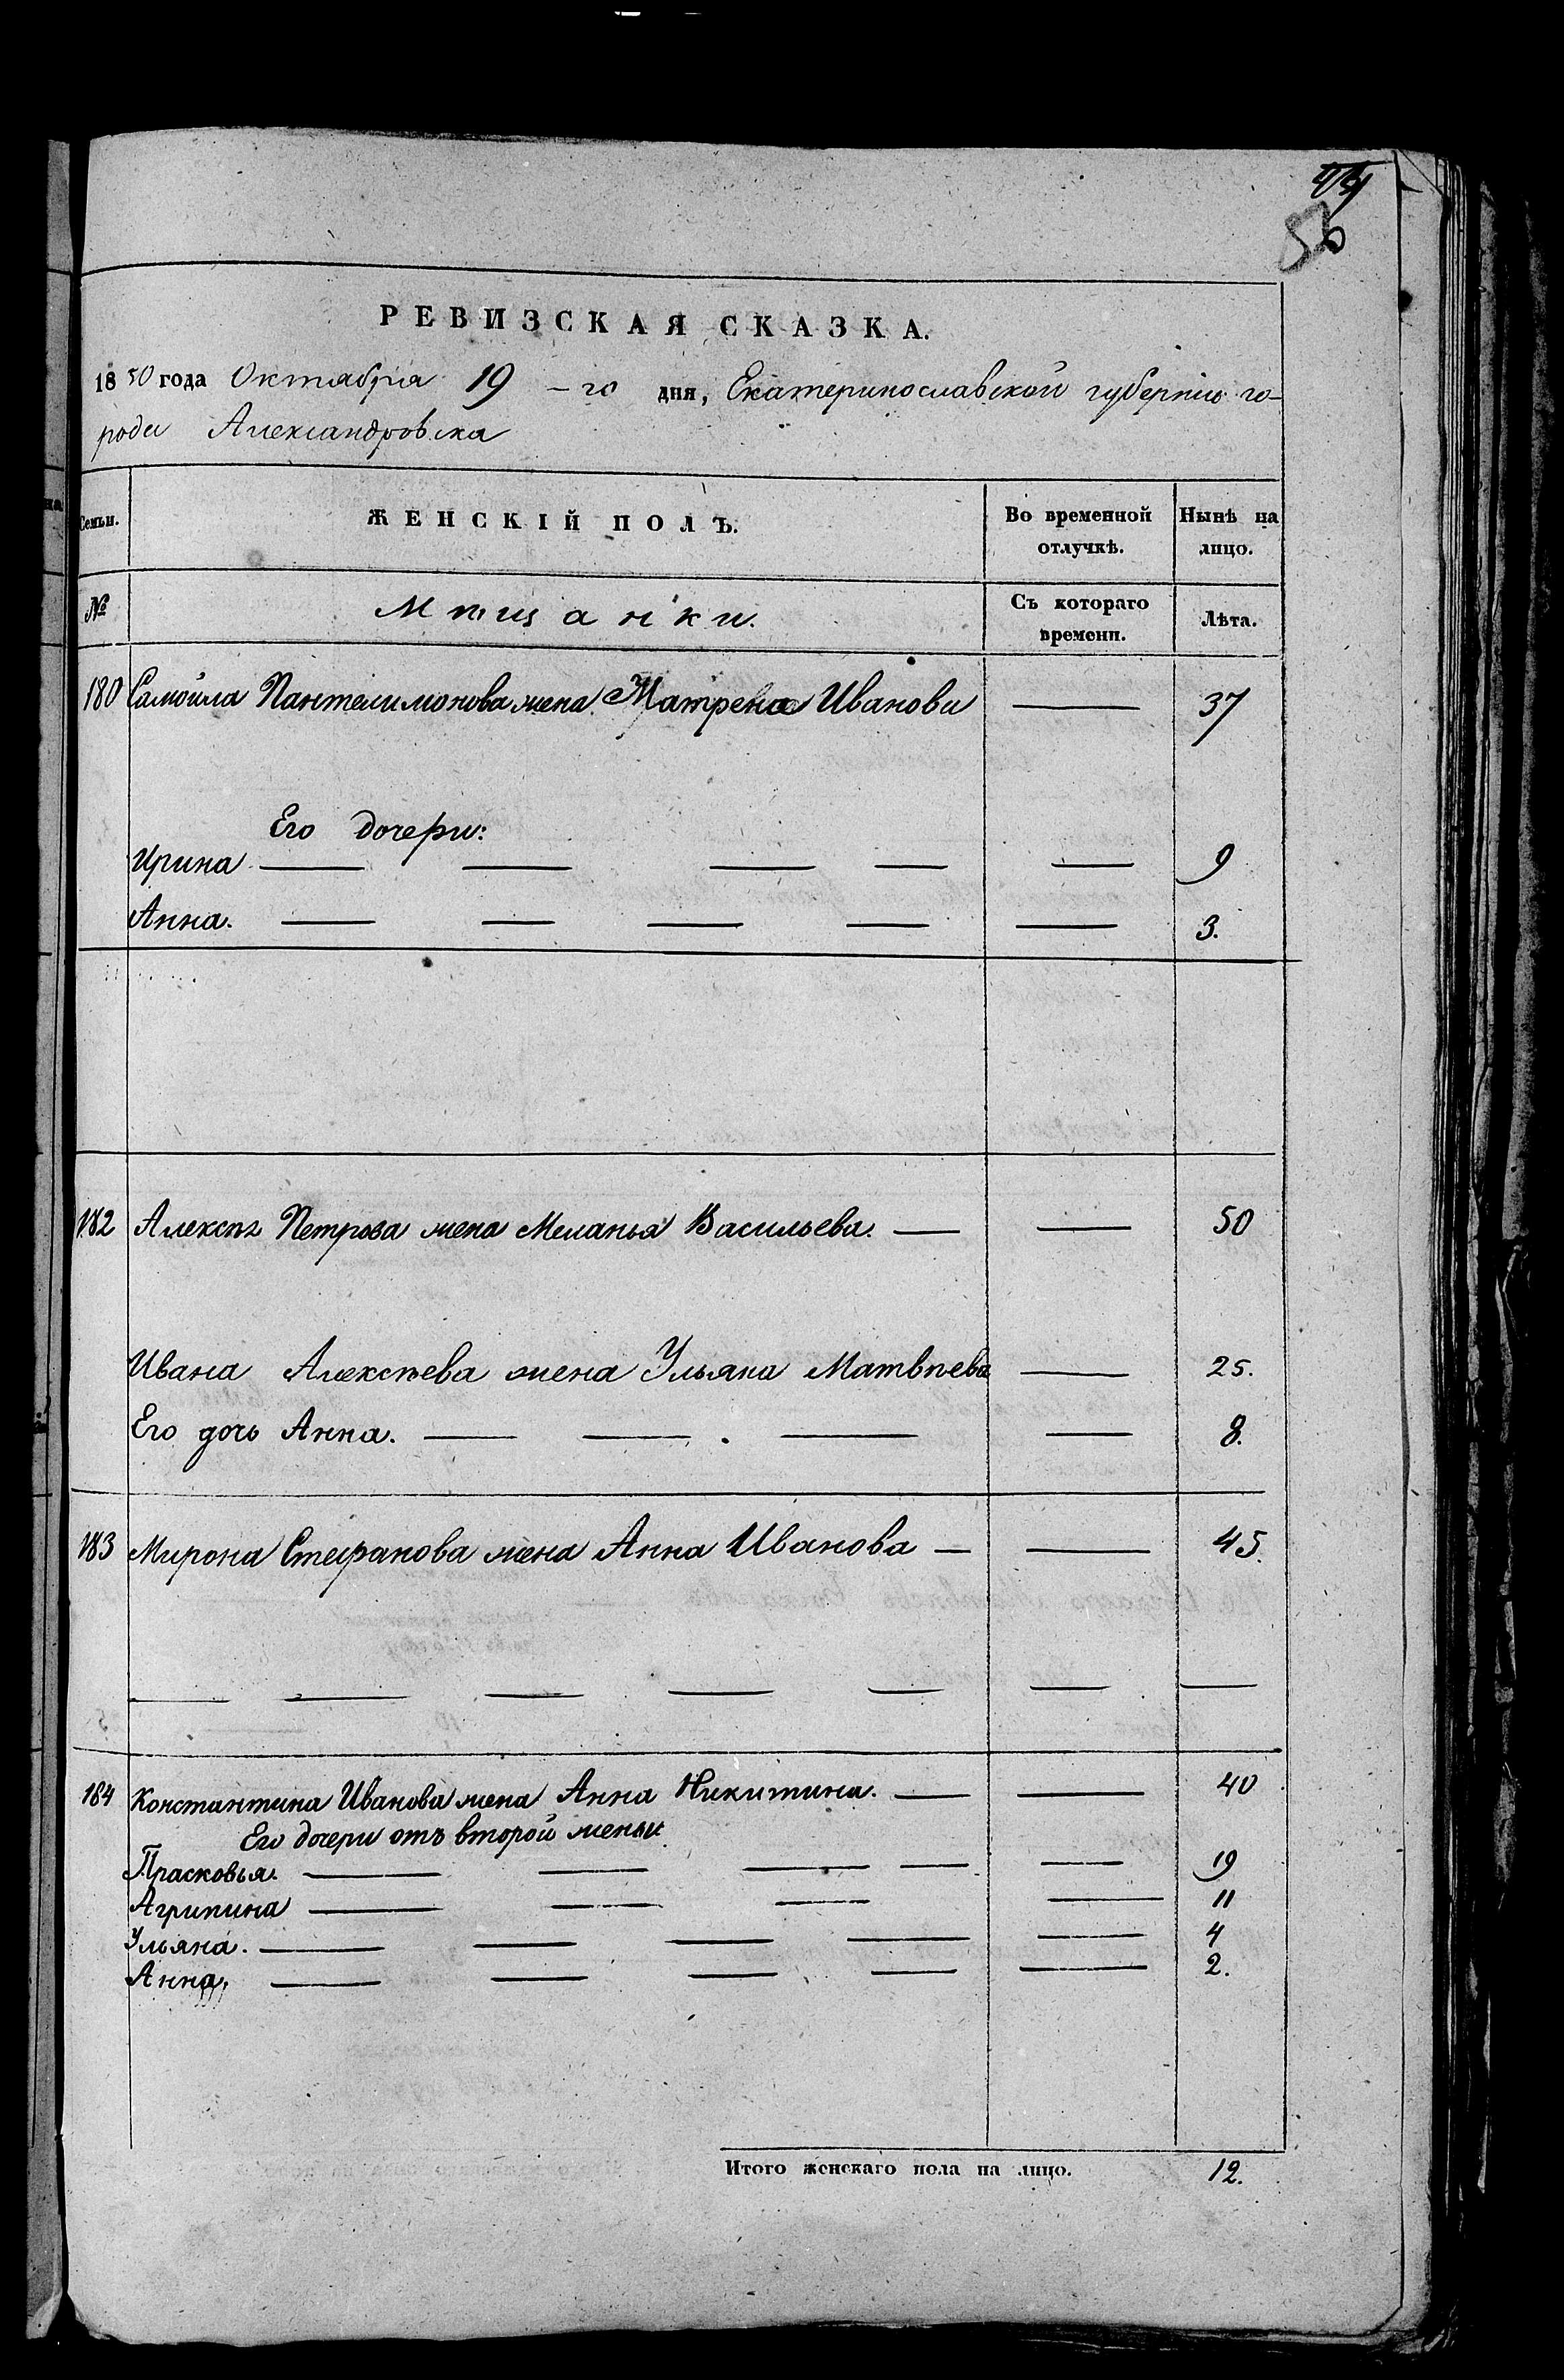 56
РЕВИЗСКАЯ СКАЗКА.
1850 года Октября 19-го дня, Екатеринославской губерніи го-
рода Александровска
Семьи.
ЖЕНСКІЙ ПОЛЪ.
Во временной отлучкѣ.
Нынѣ на лицо.
№
Мѣщанки.
Съ котораго времени.
Лѣта.
180 Самойла Пантелимонова жена Матрена Иванова — 37
Его дочери:
Ирина — — — — — 9
Анна. — — — — — 3.
182 Алексѣя Петрова жена Меланья Васильева. — — 50
Ивана Алексѣева жена Ульяна Матвѣева — 25.
Его дочь Анна. — — — — 8.
183 Мирона Стефанова жена Анна Иванова — — 45.
— — — — — — —
184 Константина Иванова жена Анна Никитина. — — 40
Его дочери отъ второй жены
Прасковья. — — — — — 19
Агрипина — — — — 11
Ульяна. — — — — — 4
Анна, — — — — — 2.
Итого женскаго пола на лицо. 12.